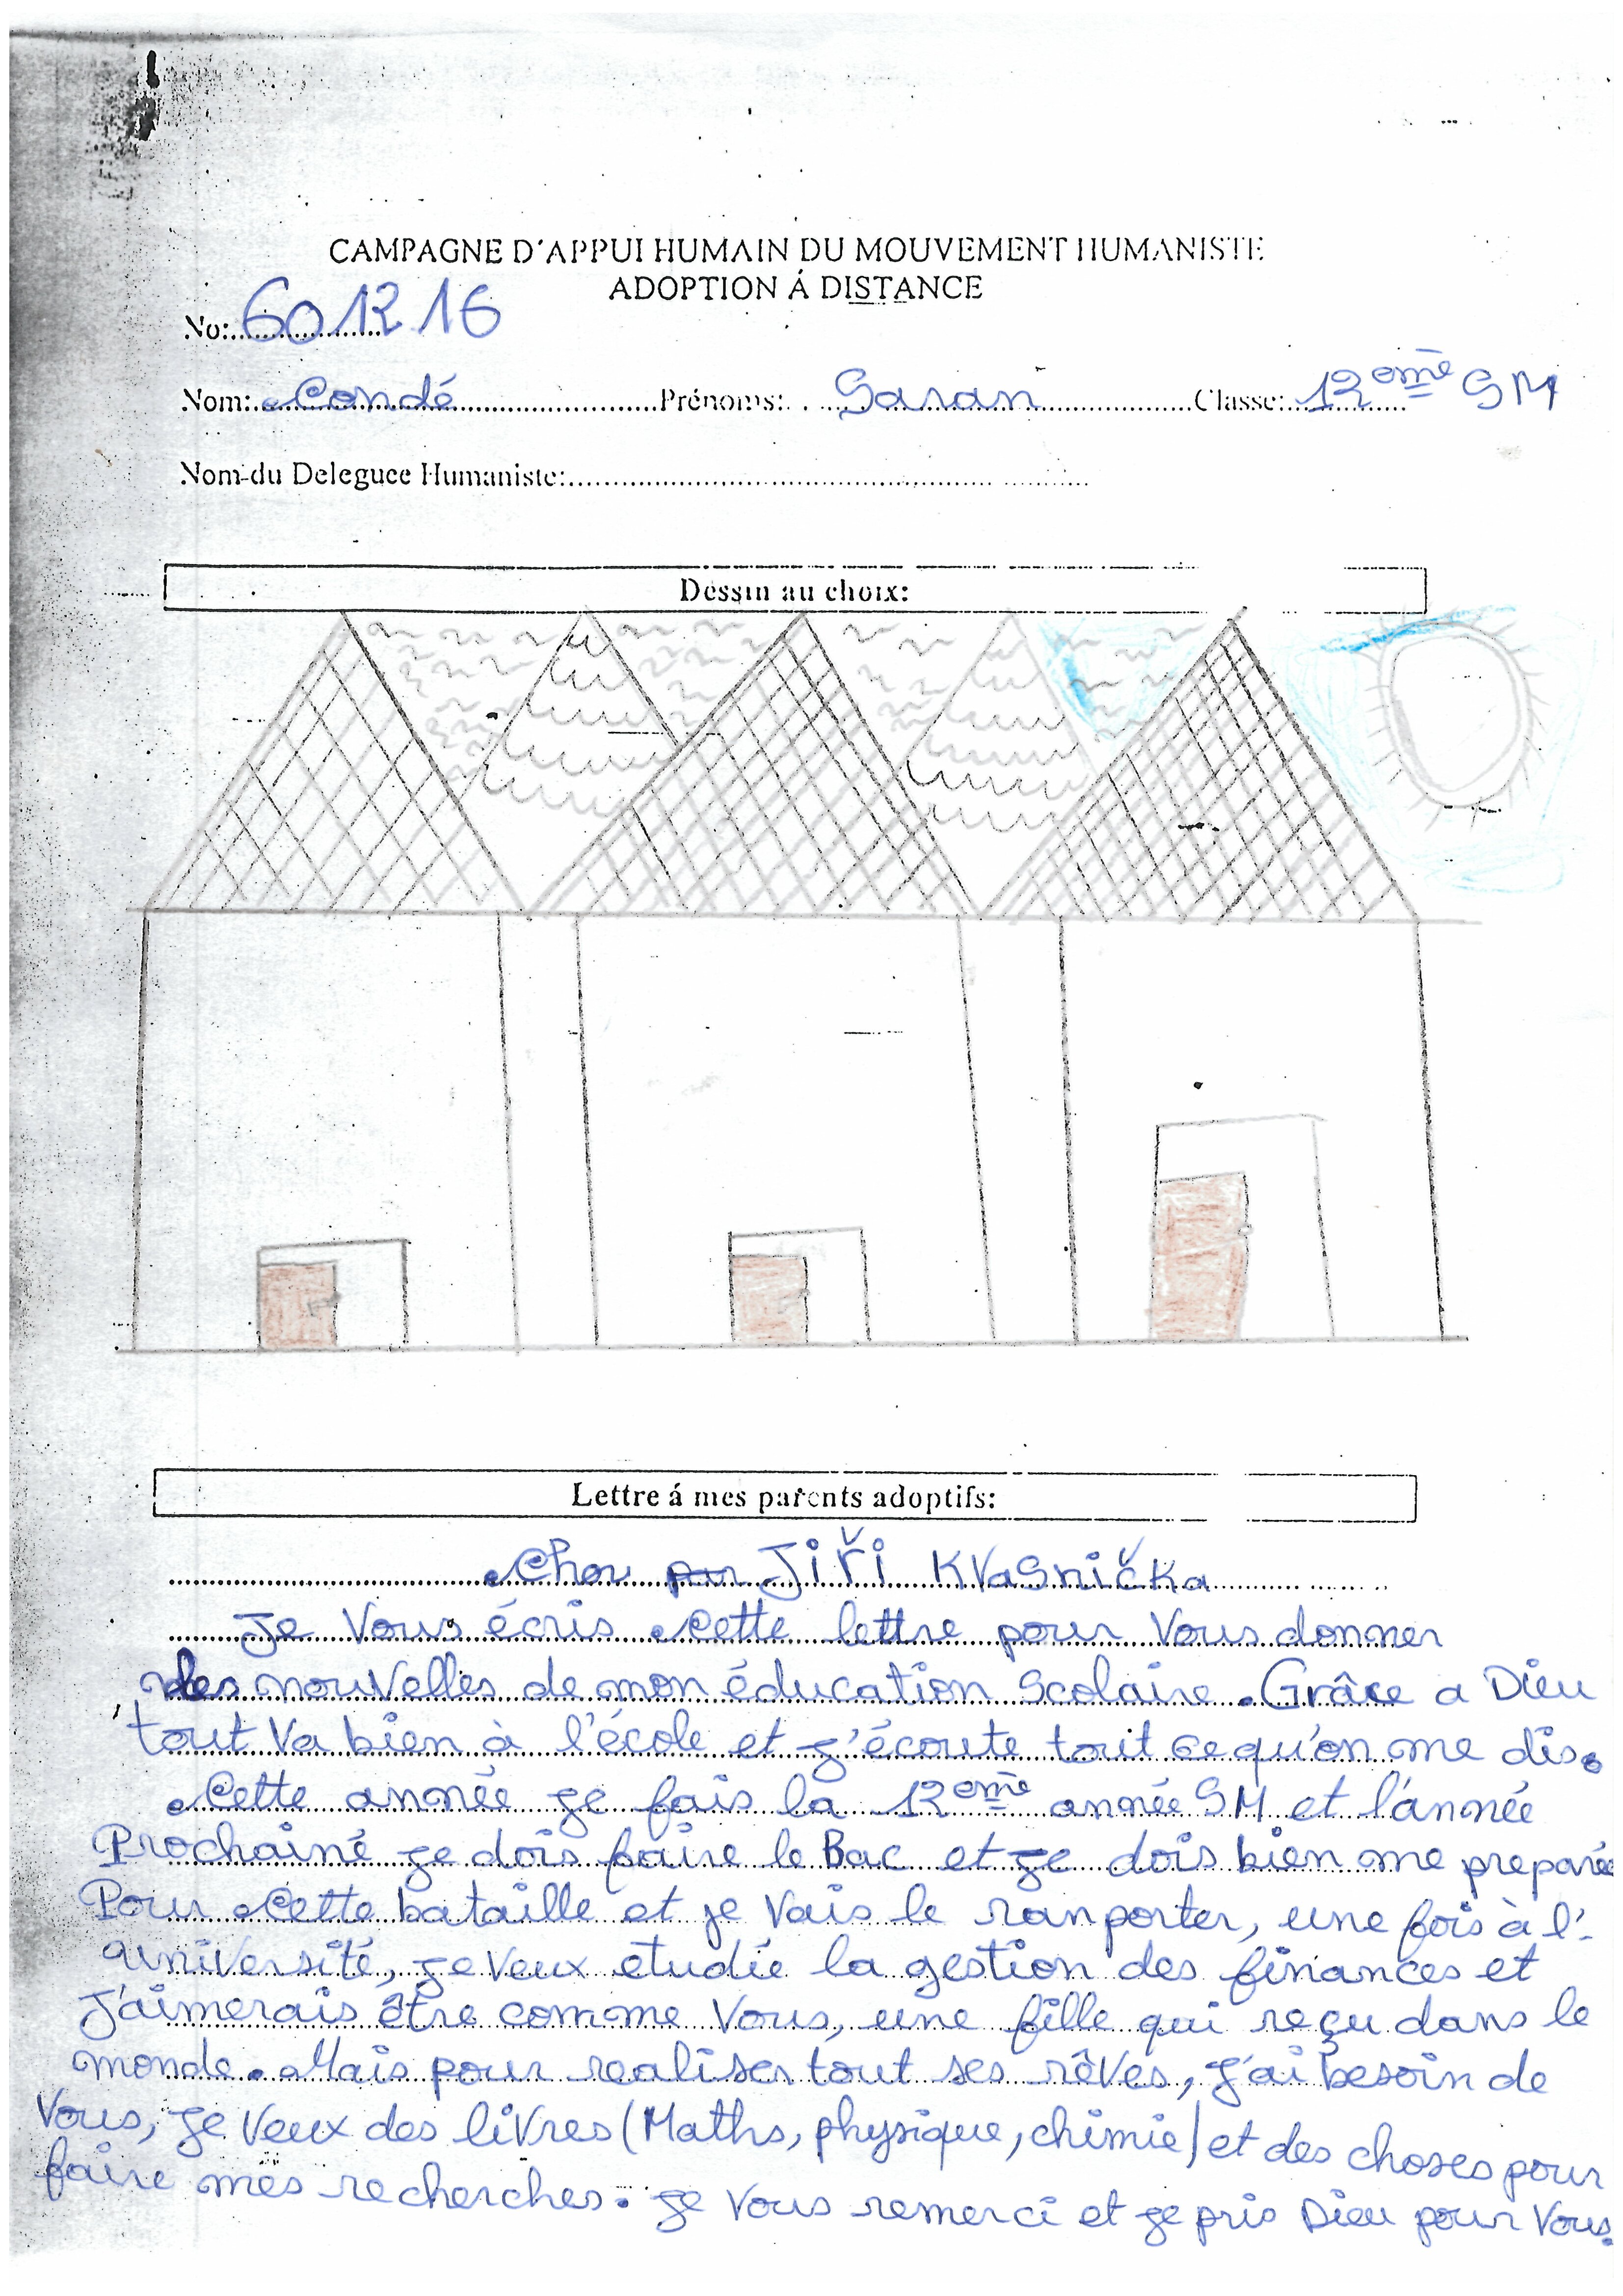 CAMPAGNE D'APPUI HUMAIN DU MOUVEMENT HUMANISTE
ADOPTION Á DISTANCE
No: 601216
Nom: Condé Prénoms: Saran Classe: 12ème SM
Nom du Deleguee Humaniste:
Dessin au choix:
Lettre á mes parents adoptifs:
Cher Jiří Kvasnička
Je Vous écris cette lettre pour Vous donner
des nouvelles de mon éducation Scolaire. Grâce a Dieu
tout Va bien à l'école et j'écoute tout ce qu'on me dis.
Cette année je fais la 12ème année SM et l'année
Prochaine je dois faire le Bac et je dois bien me preparée
Pour cette bataille et je Vais le ranporter, une fois à l'-
université, je Veux etudié la gestion des finances et
J'aimerais être comme Vous, une fille qui reçu dans le
monde. Mais pour realiser tout ses rêves, j'ai besoin de
Vous, je Veux des livres (Maths, physique, chimie) et des choses pour
faire mes recherches. je Vous remerci et je pris Dieu pour Vous.